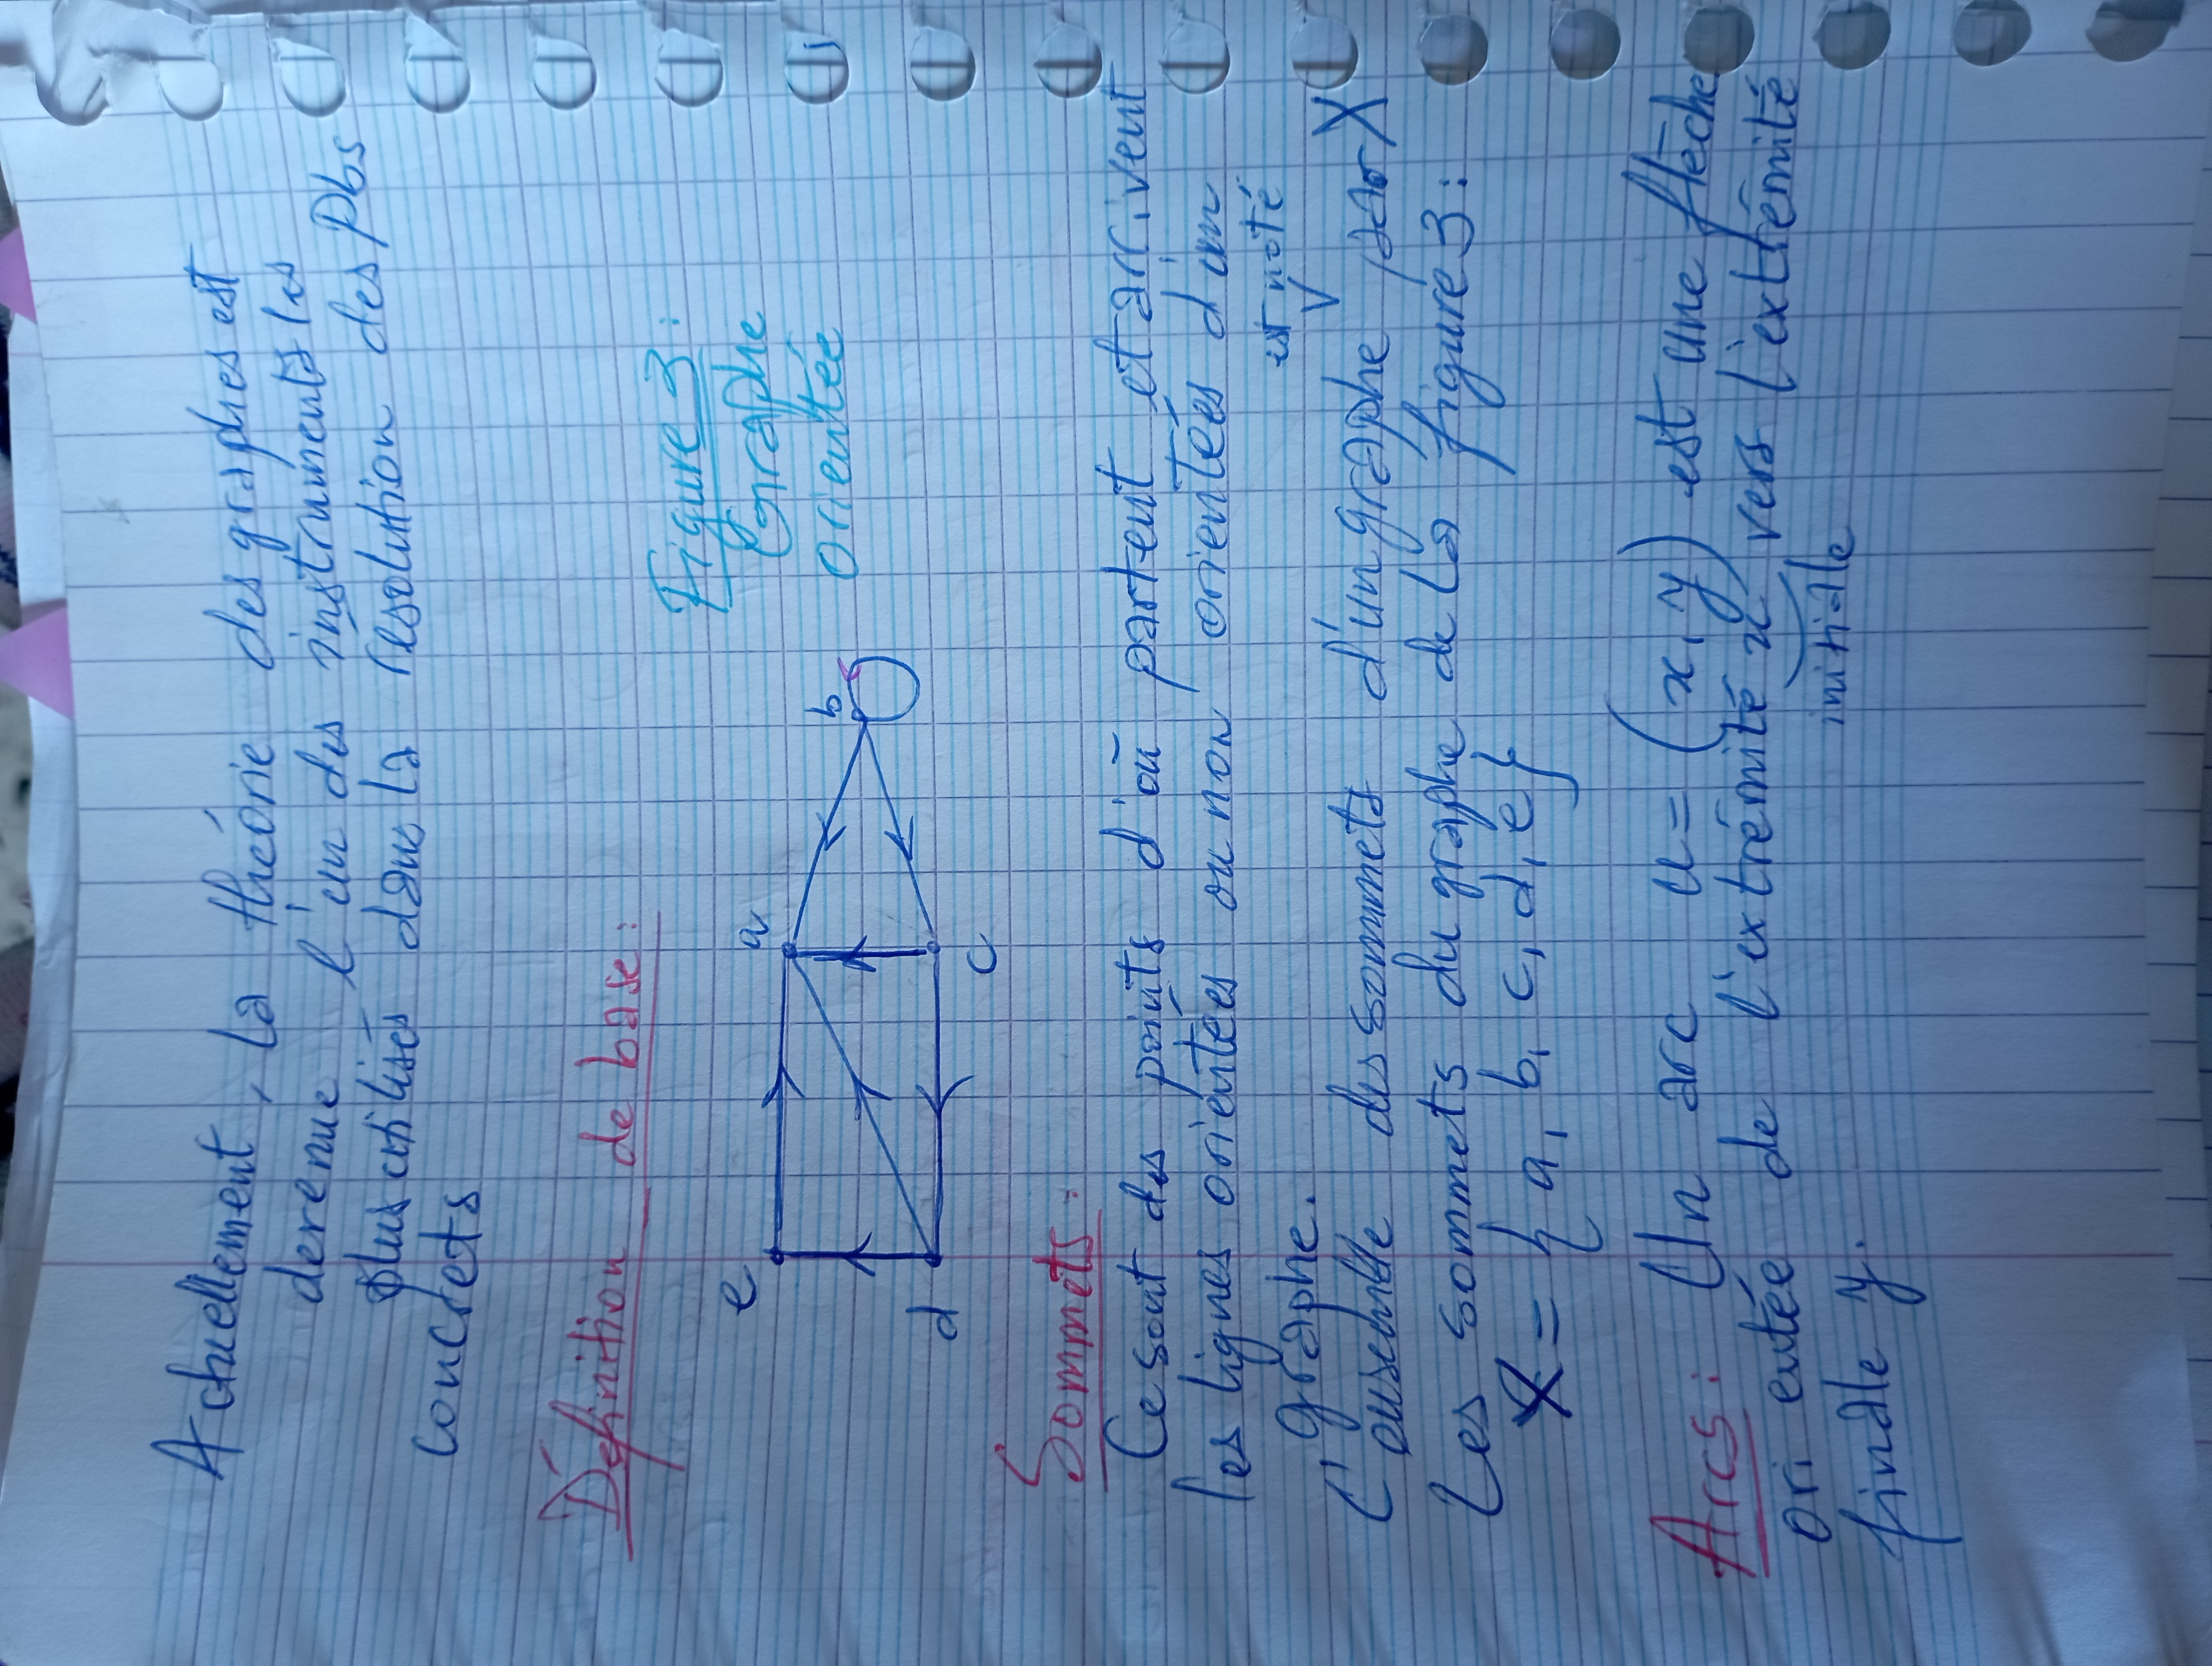 Actuellement, la théorie des graphes est
devenue l'un des instruments les
plus utilisés dans la résolution des Pbs
concrets
Définition de base:
Figure 3:
Graphe
orientée
e
a
b
d
c
Sommets:
Ce sont des points d'où partent et arrivent
les lignes orientées ou non orientées d'un
graphe.
est noté
L'ensemble des sommets d'un graphe par X
Les sommets du graphe de la figure 3:
X = { a, b, c, d, e }
Arcs: Un arc u = (x, y) est une flèche
orientée de l'extrémité x vers l'extrémité
initiale
finale y.